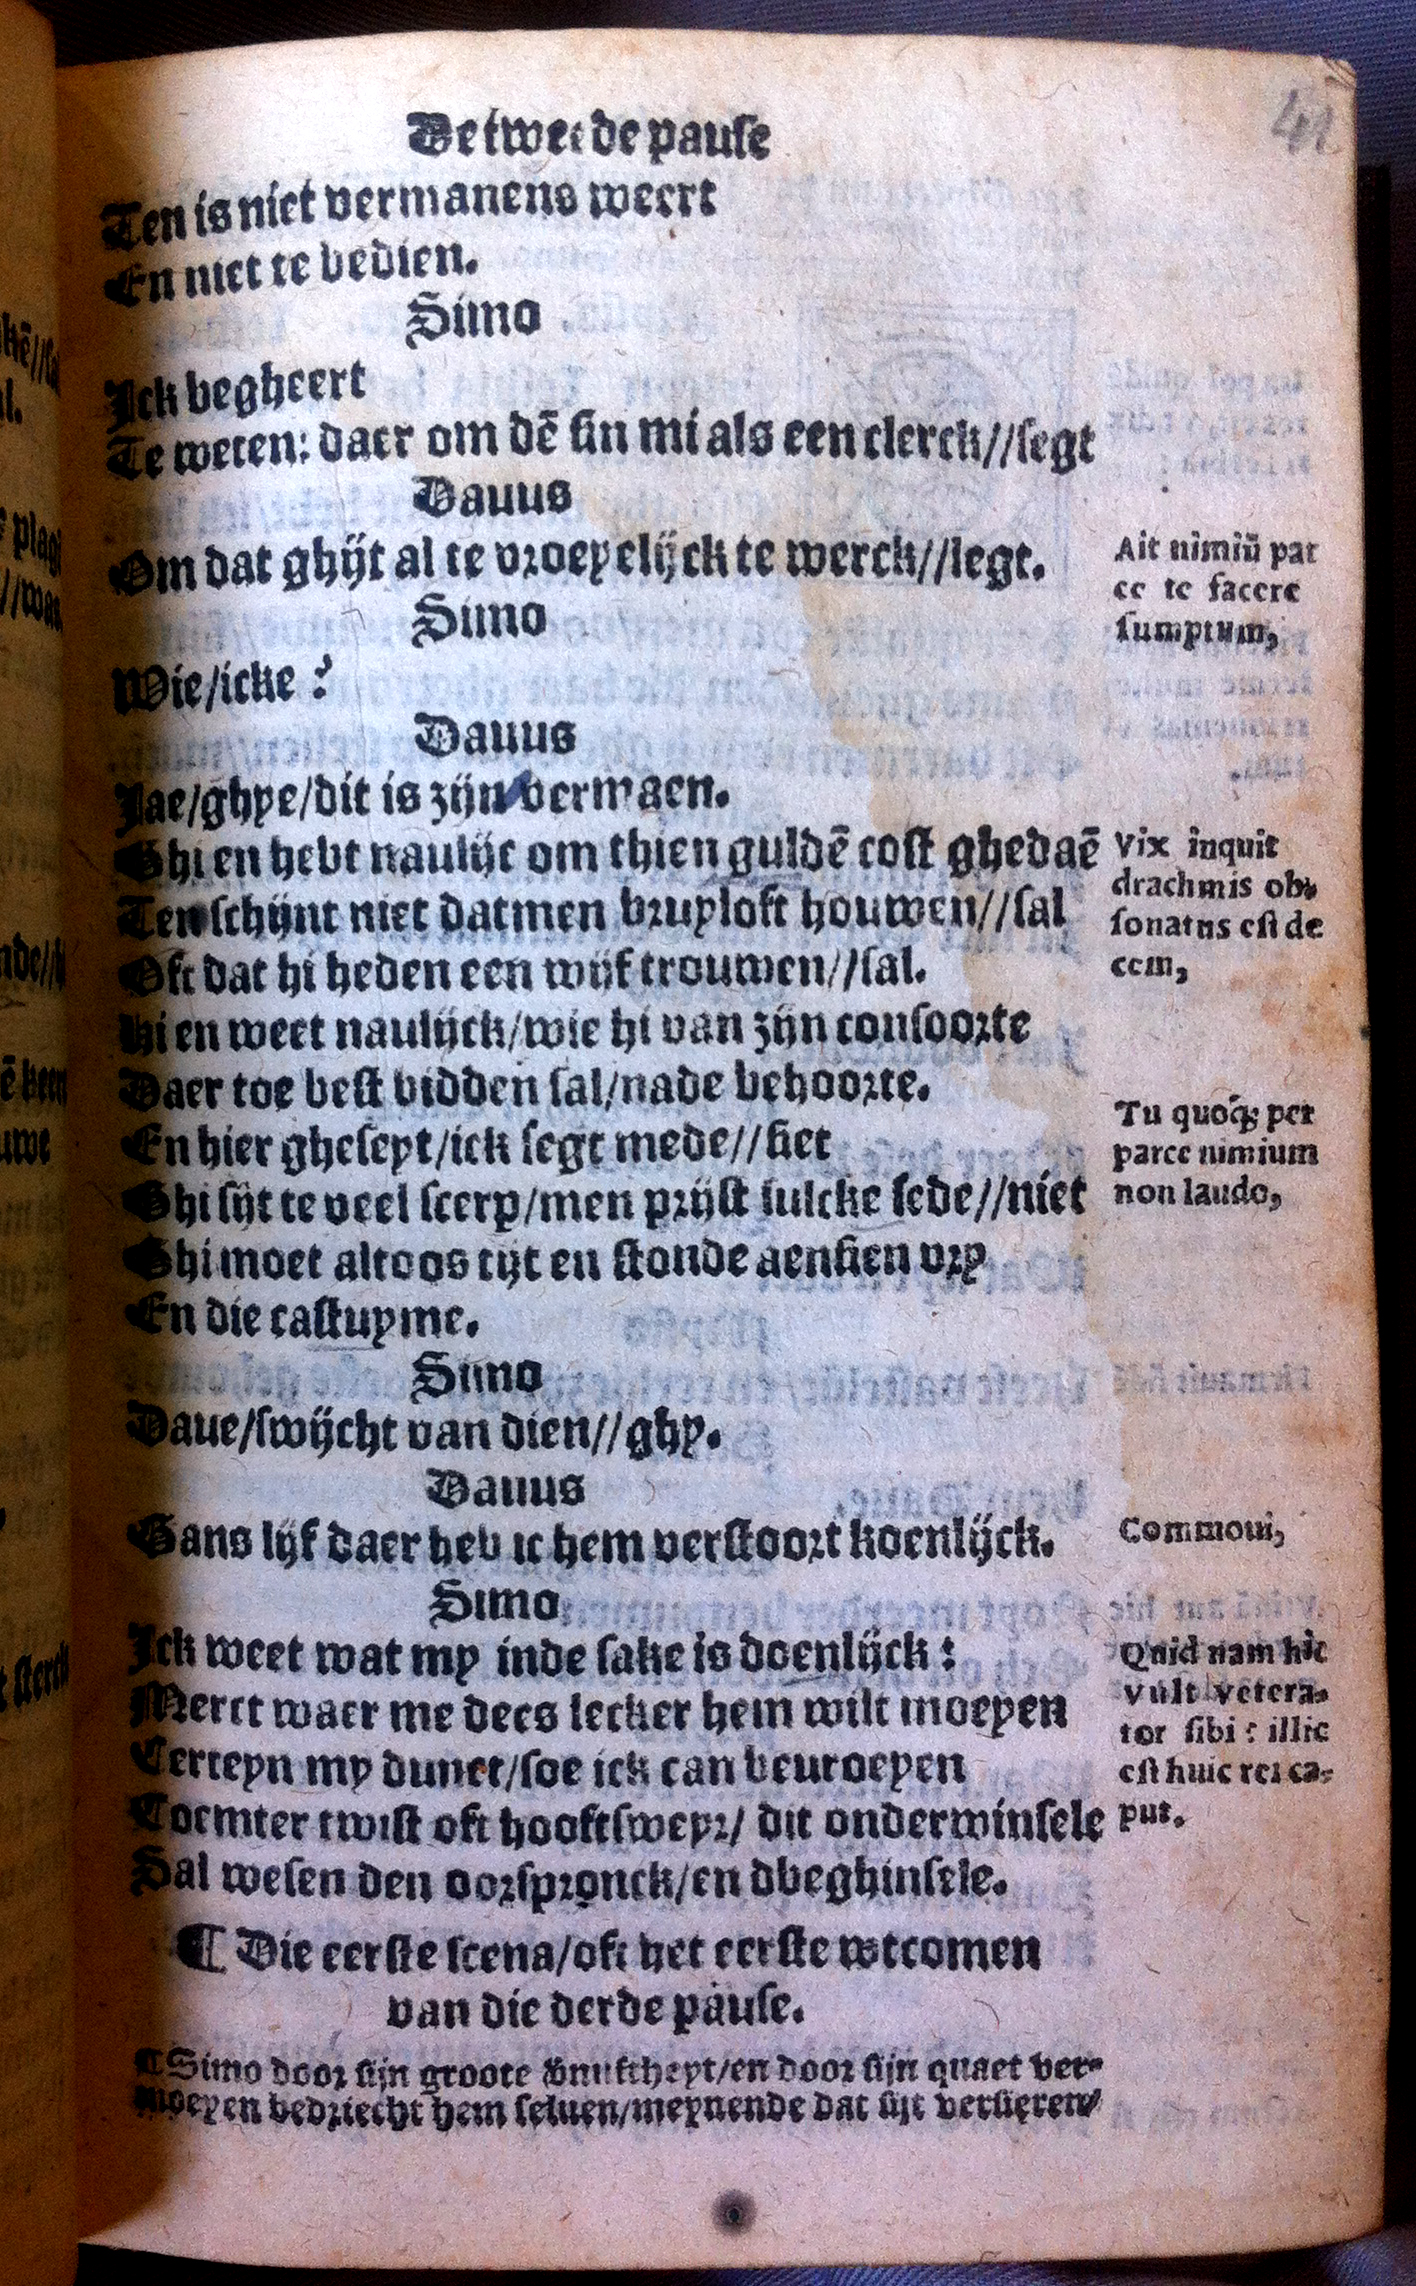 41
De tweede pause
Ten is niet vermanens weert
En niet te bedien.
Simo
Ick begheert
Te weten: daer om dē sin mi als een clerck//segt
Dauus
Om dat ghijt al te vroeyelijck te werck//legt.
Ait nimiū par
ce te facere
sumptum,
Simo
Wie/icke?
Dauus
Jae/ghye/dit is zijn vermaen.
Ghi en hebt naulijc om thien guldē cost ghedaē
Ten schijnt niet datmen bruyloft houwen//sal
Oft dat hi heden een wijf trouwen//sal.
Vix inquit
drachmis ob-
sonatus est de
cem,
Hi en weet naulijck/wie hi van zijn consoorte
Daer toe best bidden sal/nade behoorte.
En hier gheseyt/ick segt mede//siet
Ghi sijt te veel scerp/men prijst sulcke sede//niet
Ghi moet altoos tijt en stonde aensien vry
En die castuyme.
Tu quoq; per
parce nimium
non laudo,
Simo
Daue/swijcht van dien//ghy.
Dauus
Gans lijf daer heb ic hem verstoort koenlijck.
Commoui,
Simo
Ick weet wat my inde sake is doenlijck:
Merct waer me dees lecker hem wilt moeyen
Certeyn my dunct/soe ick can beuroeyen
Toemter twist oft hooftsweyr/ dit onderwinsele
Sal wesen den oorspronck/en dbeghinsele.
Quid nam hic
vult vetera-
tor sibi: illic
est huic rei ca-
put.
¶ Die eerste scena/oft het eerste wtcomen
van die derde pause.
¶ Simo door sijn groote vnuftheyt/en door sijn quaet ver-
moeyen bedriecht hem seluen/meynende dat sijt versieren/